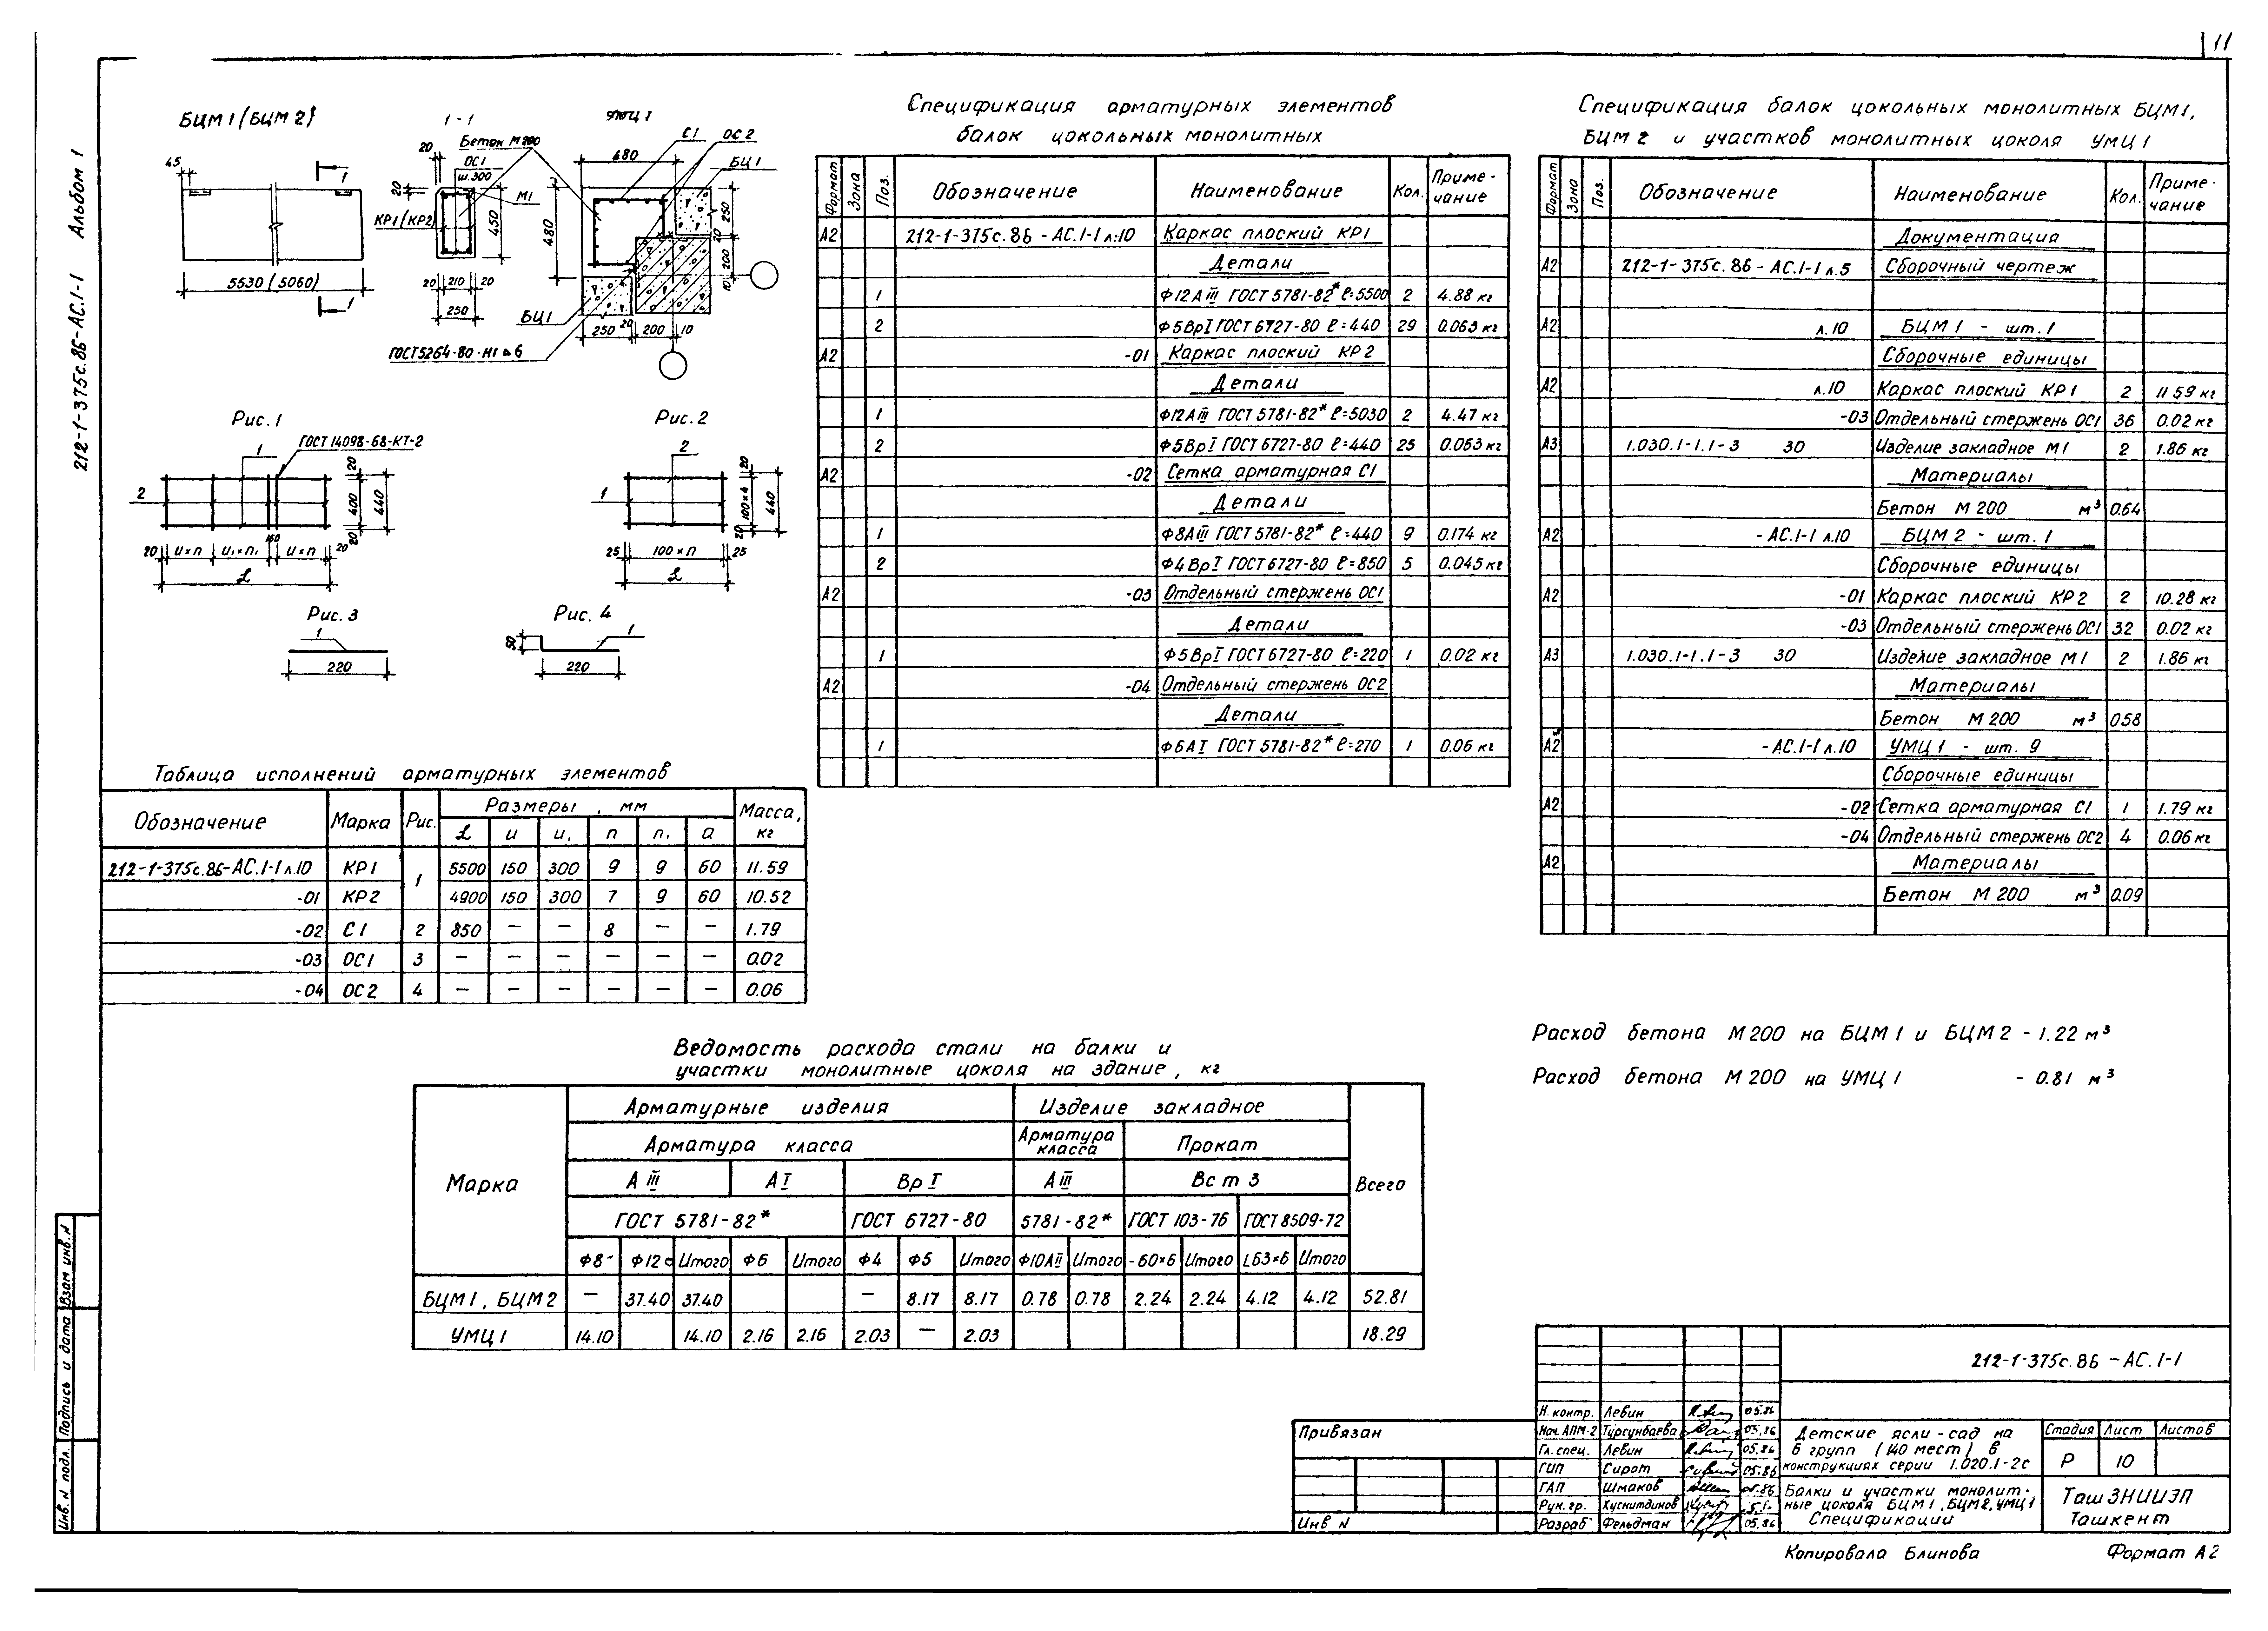 11
212-1-375с.86-АС.1-1 Альбом 1
БЦМ1(БЦМ2)
45
1
5530 (5060)
1
1-1
20
Бетон М200
ОС1
ш.300
20
М1
КР1(КР2)
450
20 210 20
250
УМЦ1
С1 ОС2
480
БЦ1
480
250
20
200
10
БЦ1
250 20 200 10
ГОСТ5264-80-Н1 6
Рис. 1
1
ГОСТ 14098-68-КТ-2
2
20
400
440
20
20 и×п и₁×п₁ и×п 20
ℒ
Рис. 2
2
1
20
100×4
440
20
25 100×п 25
ℒ
Рис. 3
1
220
Рис. 4
50
1
220
Таблица исполнений арматурных элементов
Обозначение Марка Рис. Размеры, мм Масса, кг
ℒ и и₁ п п₁ а
212-1-375с.86-АС.1-1 л.10 КР1 1 5500 150 300 9 9 60 11.59
-01 КР2 4900 150 300 7 9 60 10.52
-02 С1 2 850 — — 8 — — 1.79
-03 ОС1 3 — — — — — — 0.02
-04 ОС2 4 — — — — — — 0.06
Спецификация арматурных элементов
балок цокольных монолитных
Формат Зона Поз. Обозначение Наименование Кол. Приме-
чание
А2 212-1-375с.86-АС.1-1 л.10 Каркас плоский КР1
Детали
1 Ф12АIII ГОСТ 5781-82* ℓ=5500 2 4.88 кг
2 Ф5ВрI ГОСТ 6727-80 ℓ=440 29 0.063 кг
А2 -01 Каркас плоский КР2
Детали
1 Ф12АIII ГОСТ 5781-82* ℓ=5030 2 4.47 кг
2 Ф5ВрI ГОСТ 6727-80 ℓ=440 25 0.063 кг
А2 -02 Сетка арматурная С1
Детали
1 Ф8АIII ГОСТ 5781-82* ℓ=440 9 0.174 кг
2 Ф4ВрI ГОСТ 6727-80 ℓ=850 5 0.045 кг
А2 -03 Отдельный стержень ОС1
Детали
1 Ф5ВрI ГОСТ 6727-80 ℓ=220 1 0.02 кг
А2 -04 Отдельный стержень ОС2
Детали
1 Ф6АI ГОСТ 5781-82* ℓ=270 1 0.06 кг
Спецификация балок цокольных монолитных БЦМ1,
БЦМ2 и участков монолитных цоколя УМЦ1
Формат Зона Поз. Обозначение Наименование Кол. Приме-
чание
Документация
А2 212-1-375с.86-АС.1-1 л.5 Сборочный чертеж
А2 л.10 БЦМ1 - шт.1
Сборочные единицы
А2 л.10 Каркас плоский КР1 2 11.59 кг
-03 Отдельный стержень ОС1 36 0.02 кг
А3 1.030.1-1.1-3 30 Изделие закладное М1 2 1.86 кг
Материалы
Бетон М200 м³ 0.64
А2 -АС.1-1 л.10 БЦМ2 - шт.1
Сборочные единицы
А2 -01 Каркас плоский КР2 2 10.28 кг
-03 Отдельный стержень ОС1 32 0.02 кг
А3 1.030.1-1.1-3 30 Изделие закладное М1 2 1.86 кг
Материалы
Бетон М200 м³ 0.58
А2 -АС.1-1 л.10 УМЦ1 - шт. 9
Сборочные единицы
А2 -02 Сетка арматурная С1 1 1.79 кг
-04 Отдельный стержень ОС2 4 0.06 кг
А2 Материалы
Бетон М200 м³ 0.09
Расход бетона М200 на БЦМ1 и БЦМ2 - 1.22 м³
Расход бетона М200 на УМЦ1 - 0.81 м³
Ведомость расхода стали на балки и
участки монолитные цоколя на здание, кг
Марка Арматурные изделия Изделие закладное Всего
Арматура класса Арматура класса Прокат
АIII АI ВрI АIII Вст3
ГОСТ 5781-82* ГОСТ 6727-80 5781-82* ГОСТ 103-76 ГОСТ 8509-72
Ф8 Ф12 Итого Ф6 Итого Ф4 Ф5 Итого Ф10АII Итого -60×6 Итого L63×6 Итого
БЦМ1, БЦМ2 — 37.40 37.40 — 8.17 8.17 0.78 0.78 2.24 2.24 4.12 4.12 52.81
УМЦ1 14.10 14.10 2.16 2.16 2.03 — 2.03 18.29
Взам инв. N
Подпись и дата
Инв. N подл.
Привязан
Инв N
212-1-375с.86-АС.1-1
Н. контр. Левин 05.86
Нач. АПМ-2 Турсунбаева 05.86
Гл. спец. Левин 05.86
ГИП Сирот 05.86
ГАП Шмаков 05.86
Рук. гр. Хуснитдинов
Разраб Фельдман 05.86
Детские ясли-сад на
6 групп (140 мест) в
конструкциях серии 1.020.1-2с
Стадия Лист Листов
Р 10
Балки и участки монолит-
ные цоколя БЦМ1, БЦМ2, УМЦ1
Спецификации
ТашЗНИИЭП
Ташкент
Копировала Блинова Формат А2